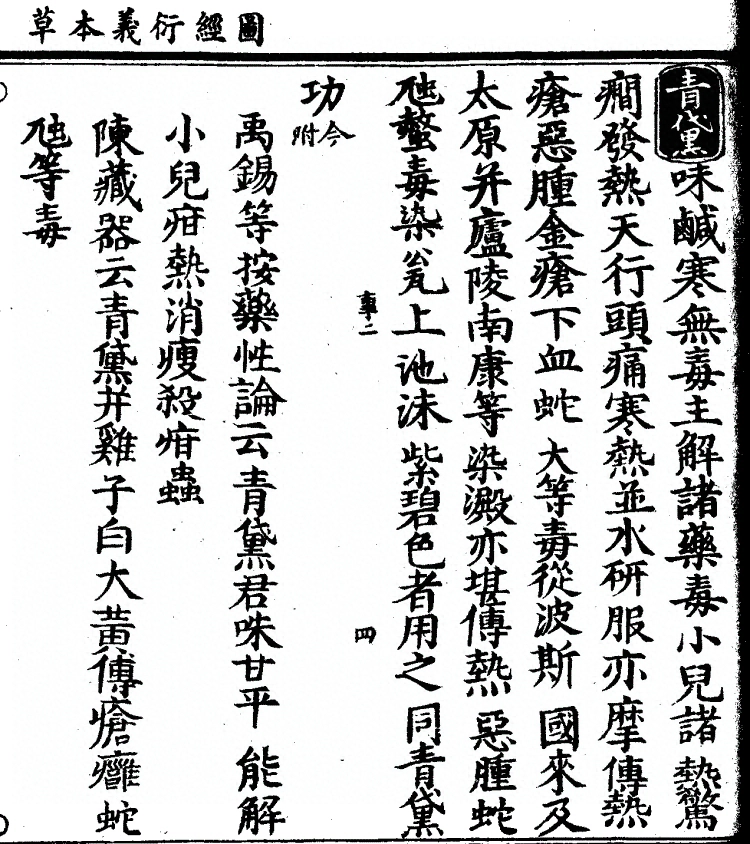 圖經衍義本草
青黛味鹹寒無毒主解諸藥毒小兒諸熱驚
癎發熱天行頭痛寒熱並水研服亦摩傅熱
瘡惡腫金瘡下血蛇犬等毒從波斯國來及
太原并廬陵南康等染澱亦堪傅熱惡腫蛇
虺螫毒染瓮上池沫紫碧色者用之同青黛
功今附
禹錫等按藥性論云青黛君味甘平能解
小兒疳熱消瘦殺疳蟲
陳藏器云青黛并雞子白大黃傅瘡癰蛇
虺等毒
四